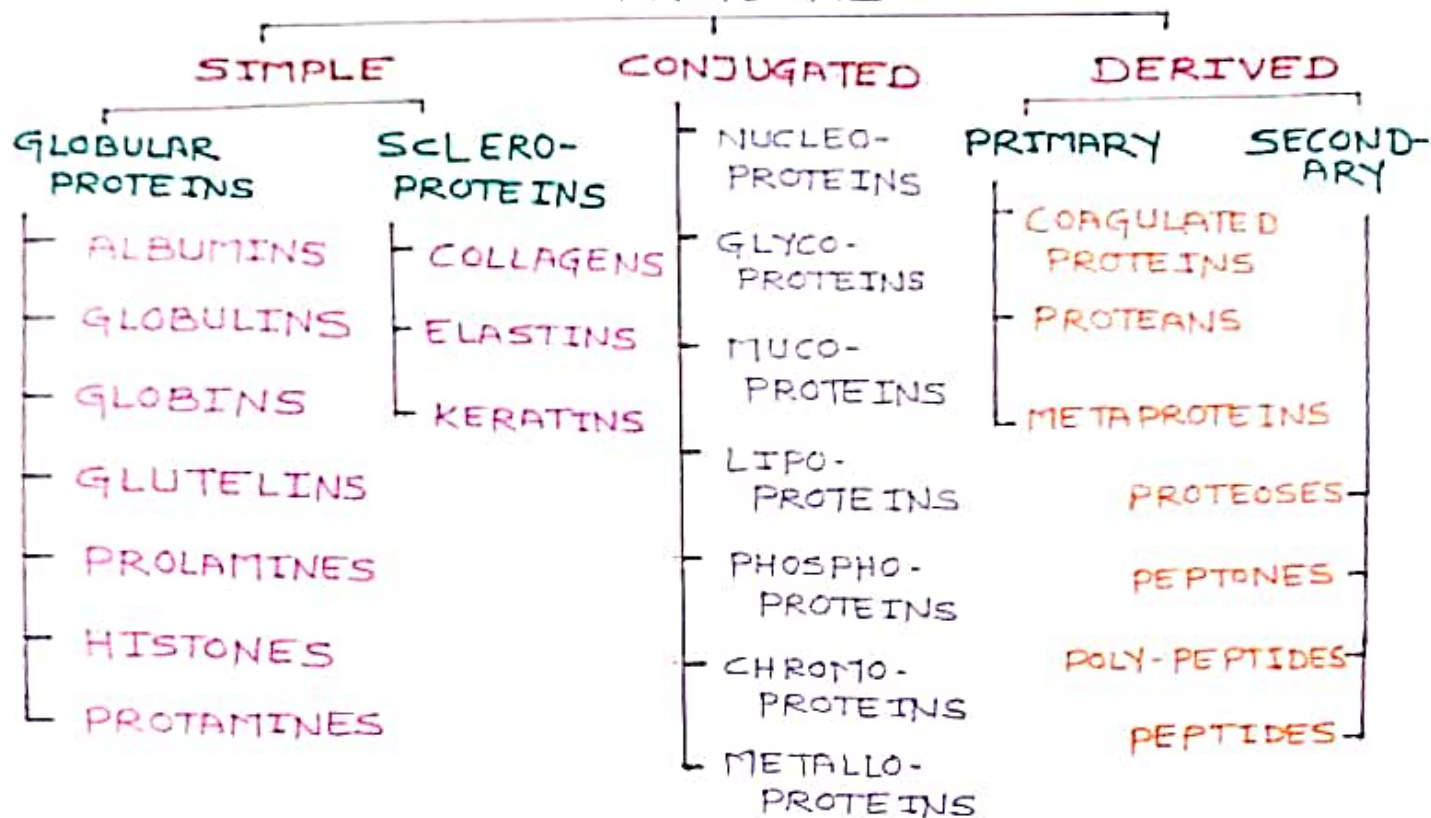 SIMPLE
CONJUGATED
DERIVED
GLOBULAR
PROTEINS
ALBUMINS
GLOBULINS
GLOBINS
GLUTELINS
PROLAMINES
HISTONES
PROTAMINES
SCLERO-
PROTEINS
COLLAGENS
ELASTINS
KERATINS
NUCLEO-
PROTEINS
GLYCO-
PROTEINS
MUCO-
PROTEINS
LIPO-
PROTEINS
PHOSPHO-
PROTEINS
CHROMO-
PROTEINS
METALLO-
PROTEINS
PRIMARY
COAGULATED
PROTEINS
PROTEANS
METAPROTEINS
SECOND-
ARY
PROTEOSES
PEPTONES
POLY-PEPTIDES
PEPTIDES